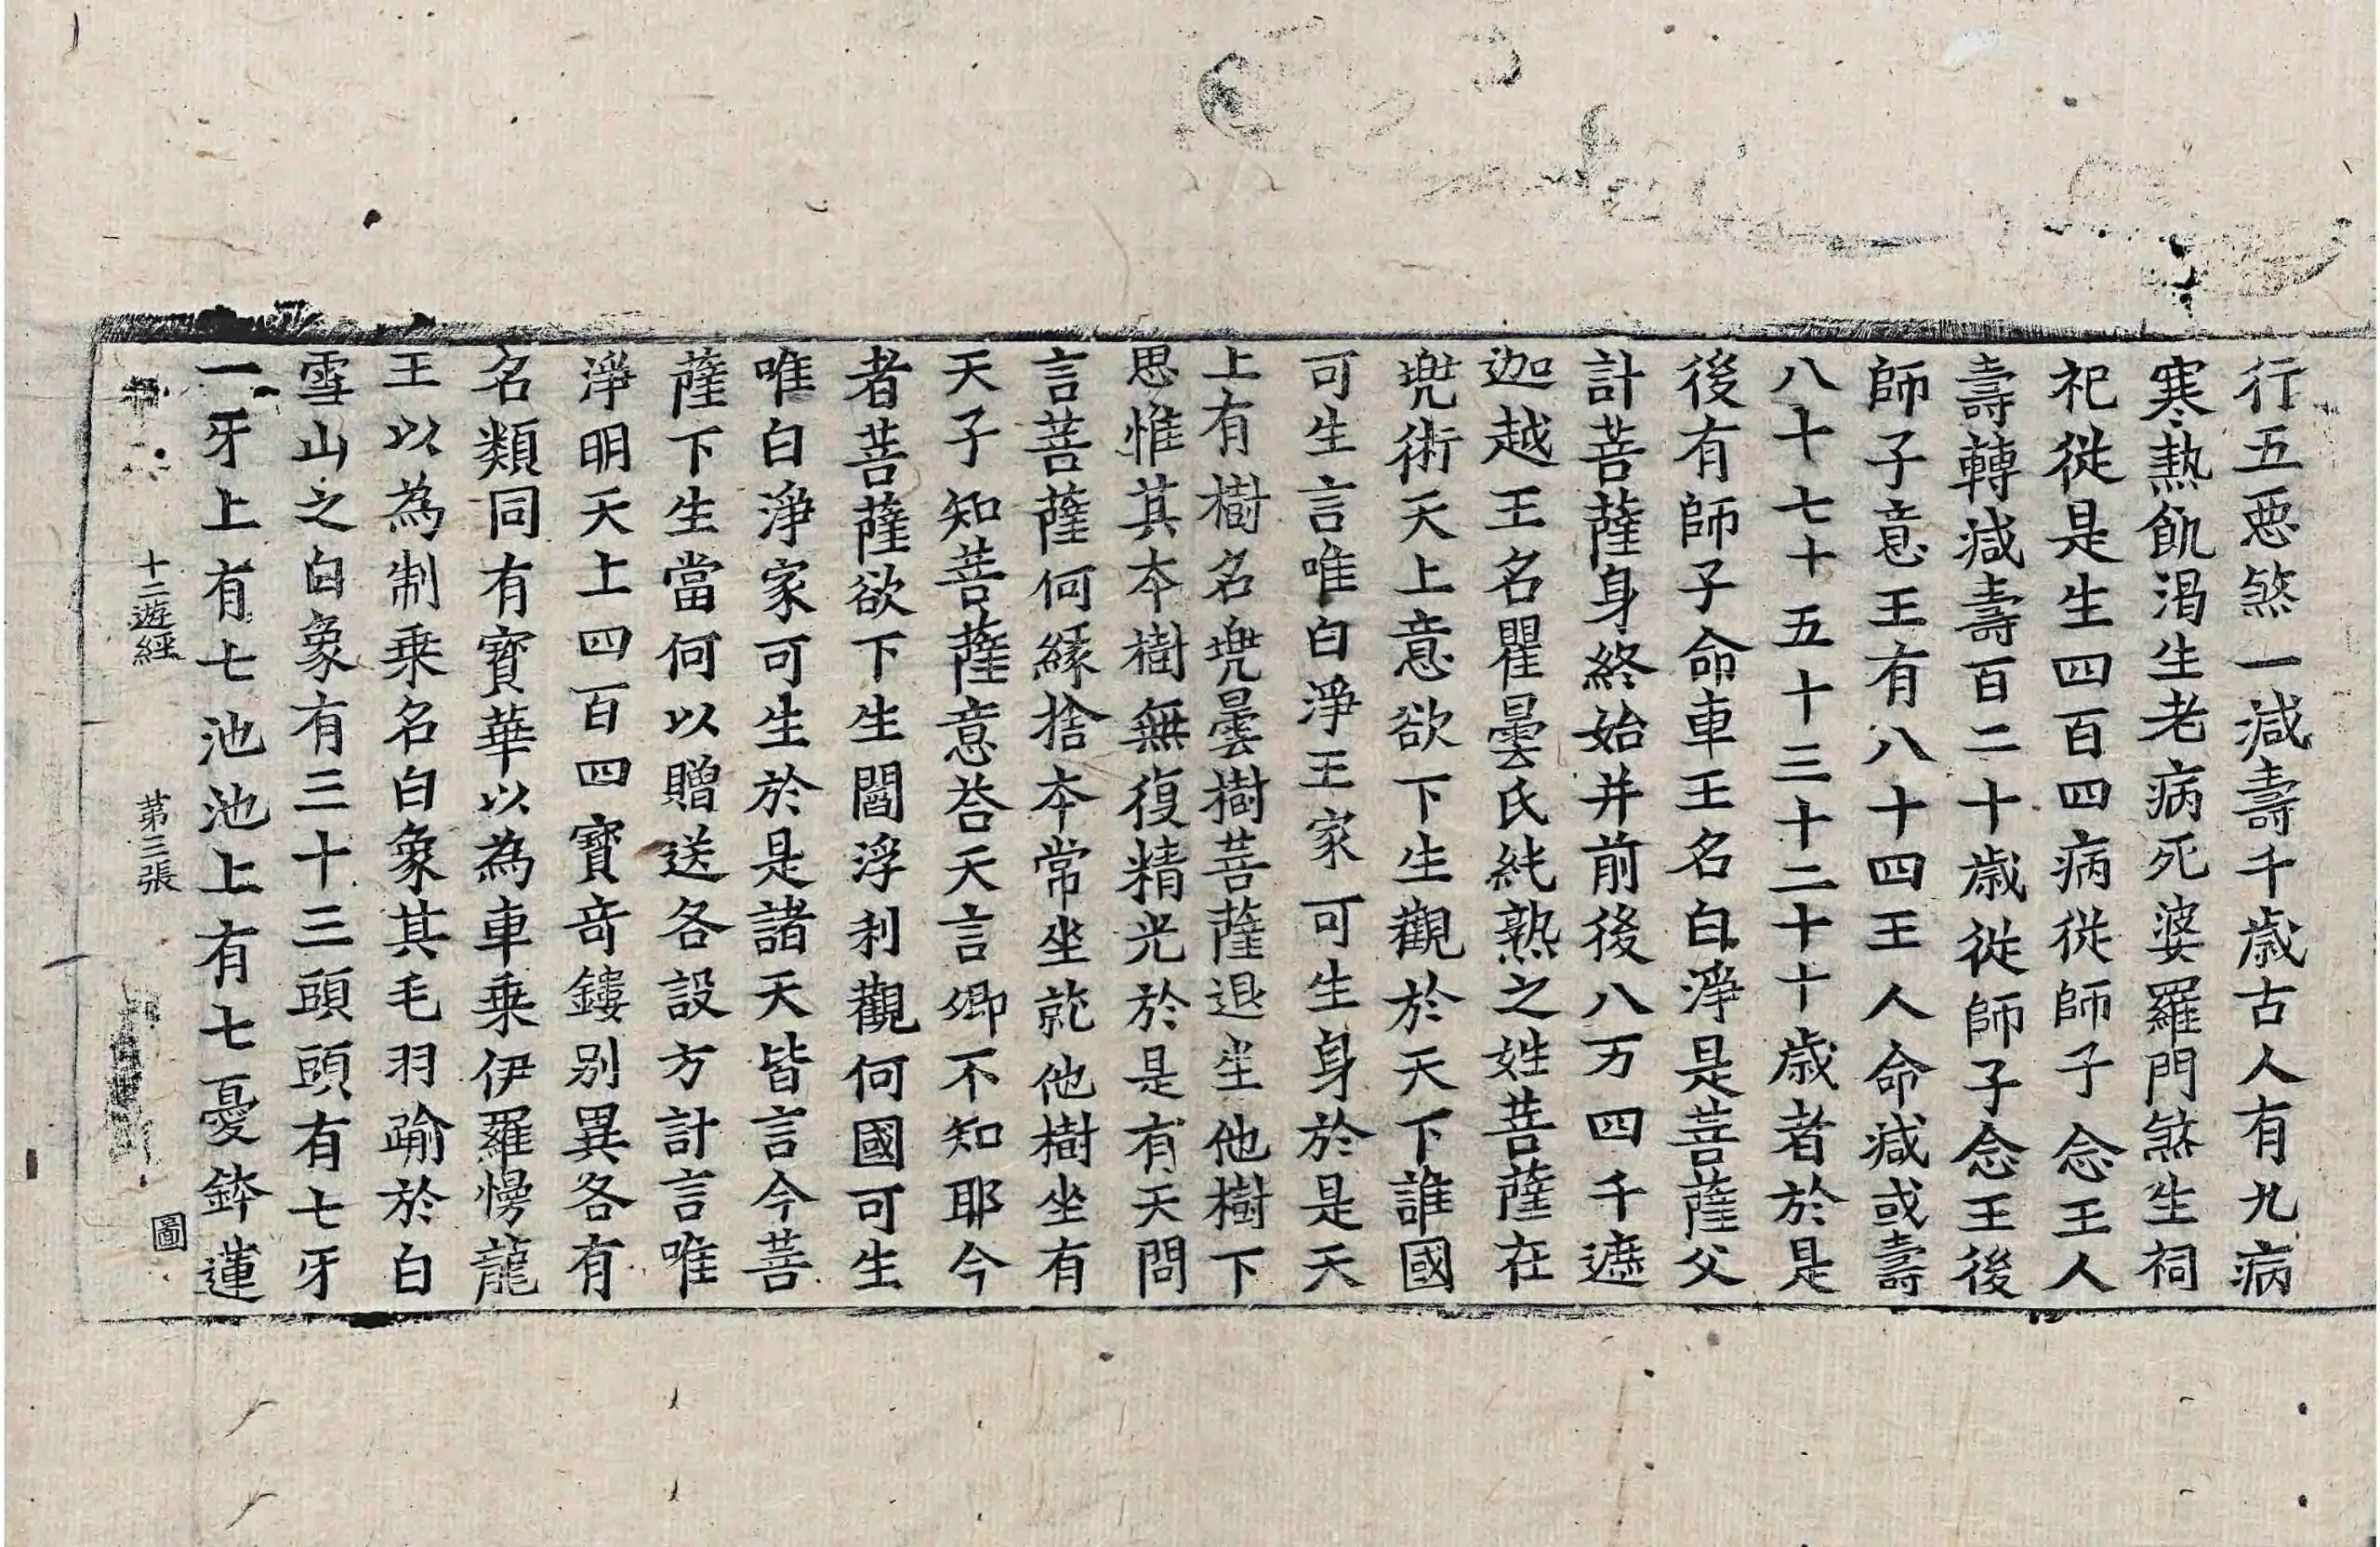 行五惡煞一減壽千歲古人有九病
寒熱飢渴生老病死婆羅門煞生祠
祀從是生四百四病從師子念王人
壽轉減壽百二十歲從師子念王後
師子意王有八十四王人命減或壽
八十七十五十三十二十十歲者於是
後有師子命車王名白淨是菩薩父
計菩薩身終始并前後八万四千遮
迦越王名瞿曇氏純熟之姓菩薩在
兠術天上意欲下生觀於天下誰國
可生言唯白淨王家可生身於是天
上有樹名兠曇樹菩薩退坐他樹下
思惟其本樹無復精光於是有天問
言菩薩何緣捨本常坐就他樹坐有
天子知菩薩意荅天言卿不知耶今
者菩薩欲下生閻浮利觀何國可生
唯白淨家可生於是諸天皆言今菩
薩下生當何以贈送各設方計言唯
淨明天上四百四寶竒鏤別異各有
名類同有寶華以為車乗伊羅慢龍
王以為制乗名白象其毛羽踰於白
雪山之白象有三十三頭頭有七牙
一牙上有七池池上有七憂鉢蓮
十二遊經 苐三張 圖